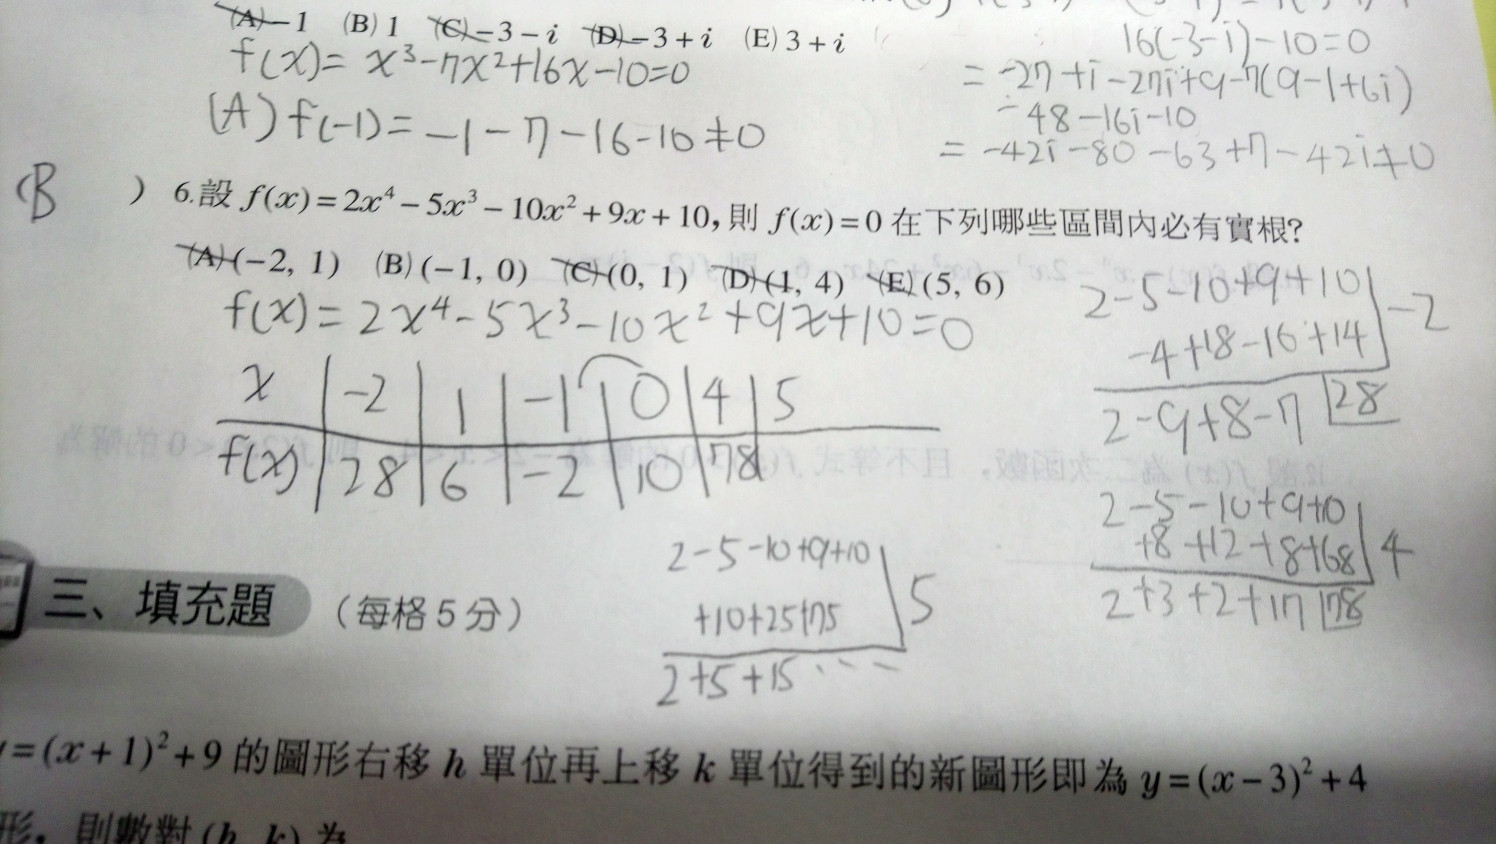 (A)−1 (B) 1 (C)−3−i (D)−3+i (E) 3+i
f(x)= x³−7x²+16x−10=0
(A) f(−1)= −1−7−16−10≠0
16(−3−i)−10=0
= −27+i−27i+9−7(9−1+6i)
−48−16i−10
= −42i−80−63+7−42i≠0
(B ) 6.設 f(x)=2x⁴−5x³−10x²+9x+10, 則 f(x)=0 在下列哪些區間內必有實根?
(A)(−2, 1) (B)(−1, 0) (C)(0, 1) (D)(1, 4) (E)(5, 6)
f(x)= 2x⁴−5x³−10x²+9x+10=0
x | −2 | 1 | −1 | 0 | 4 | 5
f(x) | 28 | 6 | −2 | 10 | 78
2−5−10+9+10 | −2
−4+18−16+14
2−9+8−7 | 28
2−5−10+9+10 | 4
+8+12+8+68
2+3+2+17 | 78
2−5−10+9+10 | 5
+10+25+75
2+5+15
三、填充題 (每格5分)
=(x+1)²+9 的圖形右移 h 單位再上移 k 單位得到的新圖形即為 y=(x−3)²+4
形,則數對 (h, k) 為